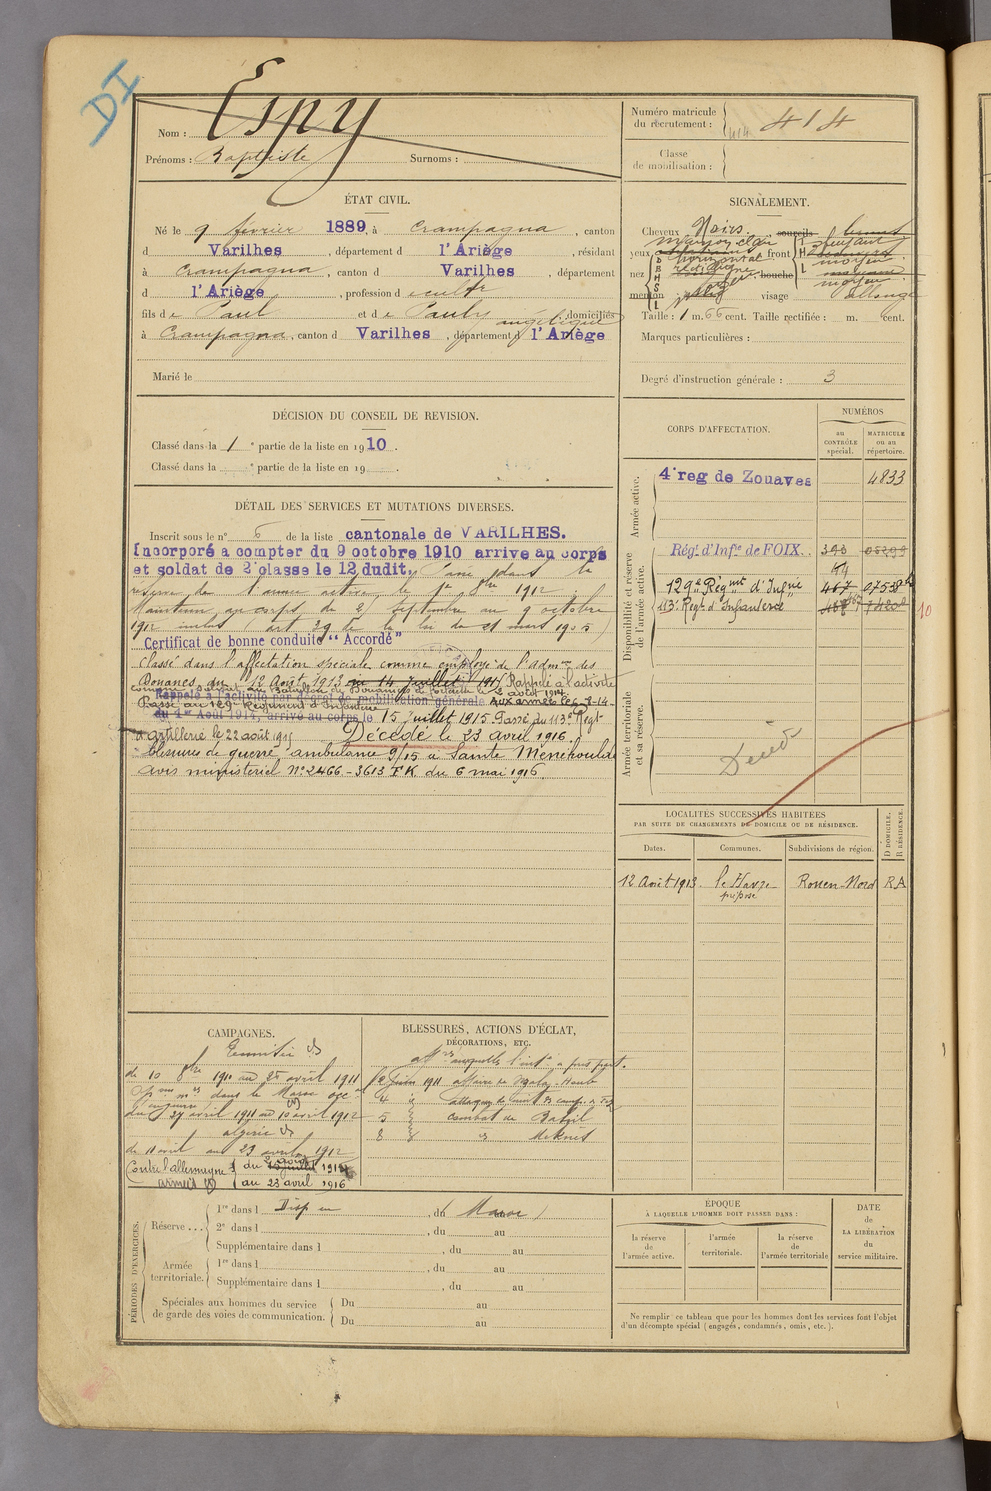 DI
Nom : Espy
Prénoms : Baptiste Surnoms :
Numéro matricule du recrutement : 414 414
Classe de mobilisation :
ÉTAT CIVIL.
Né le 9 février 1889, à Crampagna, canton
d Varilhes, département d l'Ariège, résidant
à Crampagna, canton d Varilhes, département
d l'Ariège, profession d
fils de Paul et de Pauly angélique domiciliés
à Crampagna, canton d Varilhes, département d l'Ariège
Marié le
SIGNALEMENT.
Cheveux Noirs. sourcils
yeux marron clair front fuyant
nez bouche moyen
menton visage allongé
Taille : 1 m. 66 cent. Taille rectifiée : m. cent.
Marques particulières :
Degré d'instruction générale : 3
DÉCISION DU CONSEIL DE REVISION.
Classé dans la 1 e partie de la liste en 1910.
Classé dans la e partie de la liste en 19 .
CORPS D'AFFECTATION.
NUMÉROS
au CONTRÔLE spécial.
MATRICULE ou au répertoire.
Armée active.
4e reg de Zouaves 4833
Disponibilité et réserve de l'armée active.
Régt d'Infie de FOIX.
129e Régmt d'Infrie 467
113e Regt d'Infanterie
10
Armée territoriale et sa réserve.
Décédé
DÉTAIL DES SERVICES ET MUTATIONS DIVERSES.
Inscrit sous le n° 6 de la liste cantonale de VARILHES.
Incorporé à compter du 9 octobre 1910 arrivé au corps
et soldat de 2e classe le 12 dudit. Passé dans la
réserve de l'armée active le 1er 8bre 1912.
Maintenu au corps du 2 septembre au 9 octobre
1912 inclus (art 39 de la loi du 21 mars 1905)
Certificat de bonne conduite "Accordé"
Classé dans l'affectation spéciale comme employé de l'admon des
Douanes du 12 Août 1913 au 14 Juillet 191 Rappelé à l'activité
Bataillon de Douaniers de forteresse le 2 août 1914
Rappelé à l'activité par décret de mobilisation générale Aux armées le
Passé au 129e Régiment d'Infanterie
du 1er Août 1914, arrivé au corps le 15 juillet 1915. Passé au 113e Regt
d'artillerie le 22 août 1915 Décédé le 23 avril 1916.
blessure de guerre, ambulance 9/15 à Sainte Menehould
avis ministériel N° 2466-3613 FK du 6 mai 1916.
LOCALITÉS SUCCESSIVES HABITÉES
PAR SUITE DE CHANGEMENTS DE DOMICILE OU DE RÉSIDENCE.
Dates. Communes. Subdivisions de région. D DOMICILE. R RÉSIDENCE.
12 Août 1913. le Havre préposé Rouen-Nord RA
CAMPAGNES.
de 10 8bre 1910 au 25 avril 1911
dans le Maroc occal
du 27 avril 1911 au 10 avril 1912
algérie
de 11 avril au 23 avril 1912
Contre l'allemagne du 2 août 1914
armées au 23 avril 1916
BLESSURES, ACTIONS D'ÉCLAT,
DÉCORATIONS, ETC.
affres auxquelles l'int a pris part.
2 juin 1911 affaire de
4
5 combat de
8 Meknès
PÉRIODES D'EXERCICES.
Réserve ... 1re dans l Disp en , du Maroc
2e dans l , du au
Supplémentaire dans l , du au
Armée territoriale. 1re dans l , du au
Supplémentaire dans l , du au
Spéciales aux hommes du service de garde des voies de communication. Du au
Du au
ÉPOQUE
À LAQUELLE L'HOMME DOIT PASSER DANS :
la réserve de l'armée active.
l'armée territoriale.
la réserve de l'armée territoriale
DATE de LA LIBÉRATION du service militaire.
Ne remplir ce tableau que pour les hommes dont les services font l'objet
d'un décompte spécial (engagés, condamnés, omis, etc.).